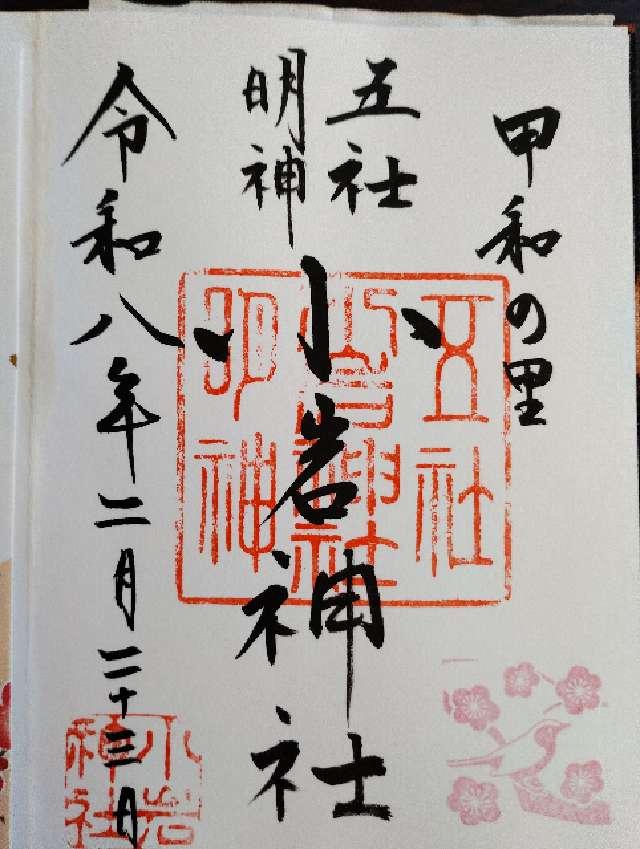 甲和の里
五社
明神
小岩神社
令和八年二月二十三日
五社
小岩神社
明神
小岩
神社